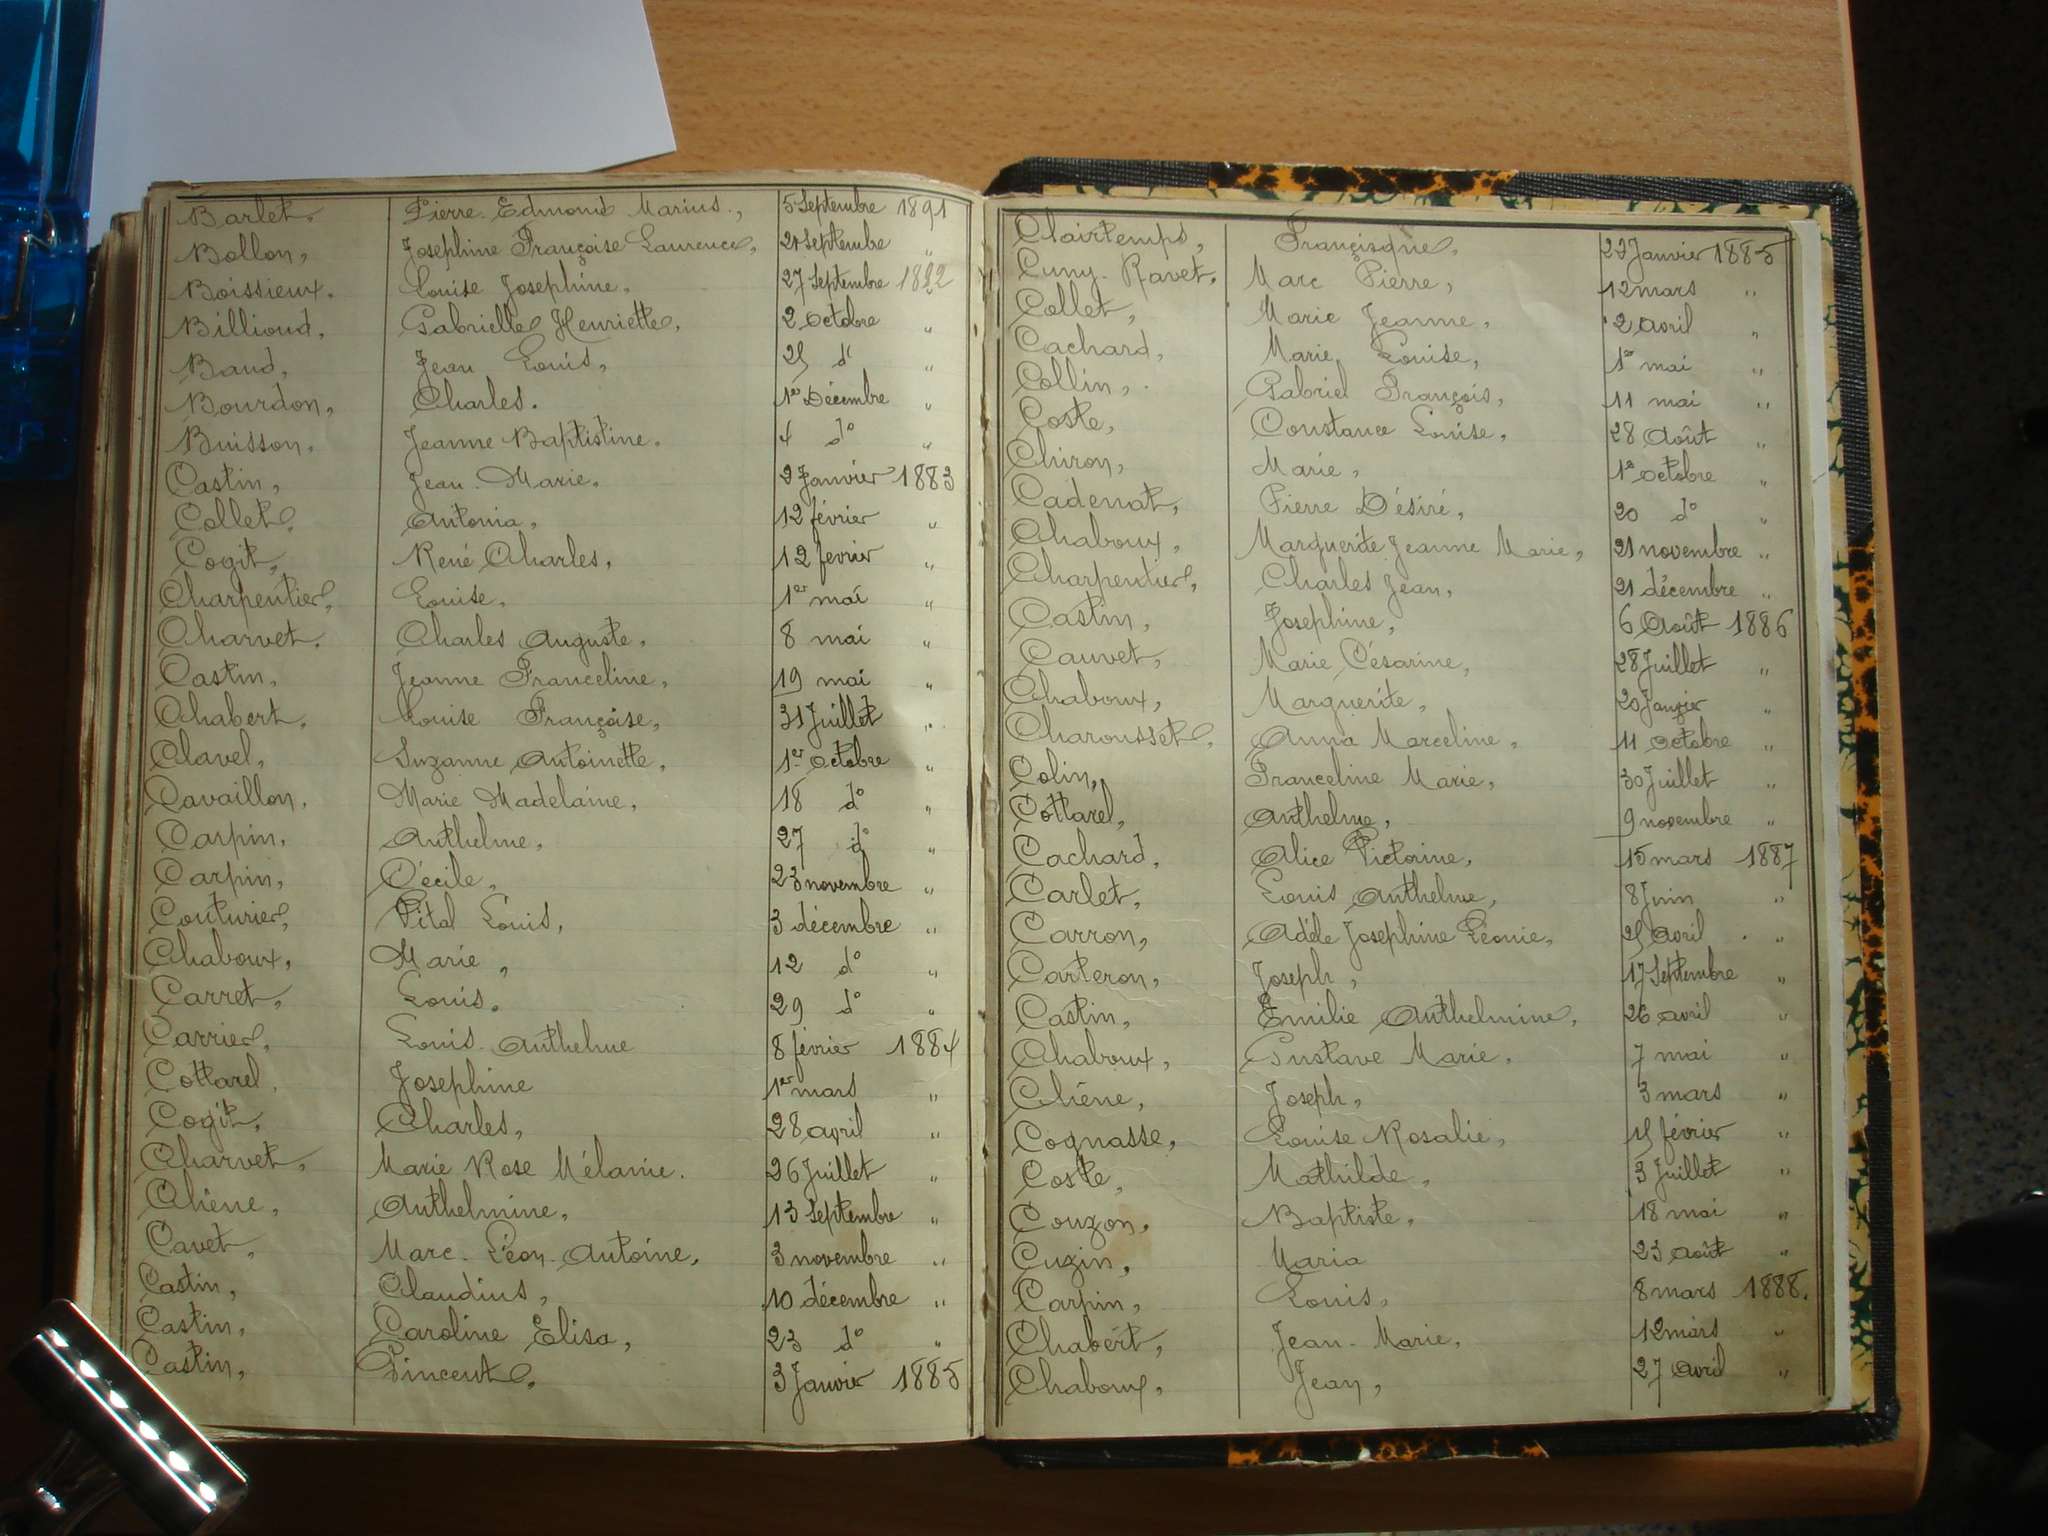 Barlet, Pierre Edmond Marius, 5 Septembre 1891
Bollon, Josephine Françoise Laurence, 21 Septembre "
Boissieux, Louise Josephine, 27 Septembre 1892
Billioud, Gabrielle Henriette, 2 Octobre "
Baud, Jean Louis, 25 d° "
Bourdon, Charles. 1er Décembre "
Buisson, Jeanne Baptistine. 4 d° "
Castin, Jean-Marie, 2 Janvier 1883
Collet, Antonia, 12 février "
Cogit, René Charles, 12 fevrier "
Charpentier, Louise, 1er mai "
Charvet, Charles Auguste, 8 mai "
Castin, Jeanne Franceline, 19 mai "
Chabert, Louise Françoise, 31 Juillet "
Clavel, Suzanne Antoinette, 1er Octobre "
Cavaillon, Marie Madelaine, 18 d° "
Carpin, Anthelme, 27 d° "
Carpin, Cécile, 23 novembre "
Couturier, Vital Louis, 3 décembre "
Chaboux, Marie, 12 d° "
Carret, Louis. 29 d° "
Carrier, Louis Anthelme 8 février 1884
Cottarel, Josephine 1er mars "
Cogit, Charles, 28 avril "
Charvet, Marie Rose Mélanie. 26 Juillet "
Chêne, Anthelmine, 13 Septembre "
Cavet, Marc-Léon-Antoine, 3 novembre "
Castin, Claudius, 10 décembre "
Castin, Caroline Elisa, 23 d° "
Castin, Vincent, 3 Janvier 1885
Clairtemps, Françisque, 22 Janvier 1885
Cuny-Ravet, Marc Pierre, 12 mars "
Collet, Marie Jeanne, 2 avril "
Cachard, Marie Louise, 1er mai "
Collin, Gabriel François, 11 mai "
Coste, Constance Louise, 28 Août "
Chiron, Marie, 1er octobre "
Cadenat, Pierre Désiré, 20 d° "
Chaboux, Marguerite Jeanne Marie, 21 novembre "
Charpentier, Charles Jean, 21 décembre "
Castin, Josephine, 6 Août 1886
Cauvet, Marie Césarine, 28 Juillet "
Chaboux, Marguerite, 20 Janvier "
Charousset, Anna Marceline, 11 octobre "
Colin, Franceline Marie, 30 Juillet "
Cottarel, Anthelme, 9 novembre "
Cachard, Alice Victorine, 15 mars 1887
Carlet, Louis Anthelme, 8 Juin "
Carron, Adèle Josephine Léonie, 25 avril "
Carteron, Joseph, 17 Septembre "
Castin, Emilie Anthelmine, 26 avril "
Chaboux, Gustave Marie, 7 mai "
Chêne, Joseph, 3 mars "
Cognasse, Louise Rosalie, 15 février "
Coste, Mathilde, 3 Juillet "
Couzon, Baptiste, 18 mai "
Cuzin, Maria 23 août "
Carpin, Louis, 8 mars 1888.
Chabert, Jean-Marie, 12 mars "
Chaboux, Jean, 27 avril "